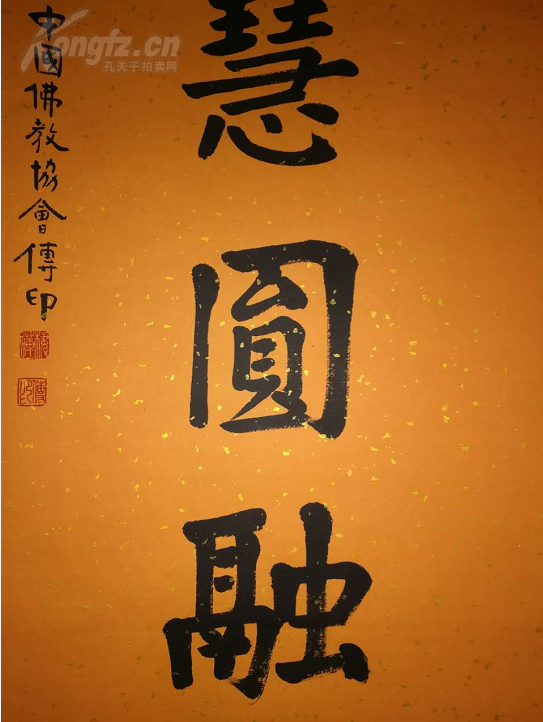 慧
圓
融
中國佛教協會傳印
Kongfz.cn
孔夫子拍卖网